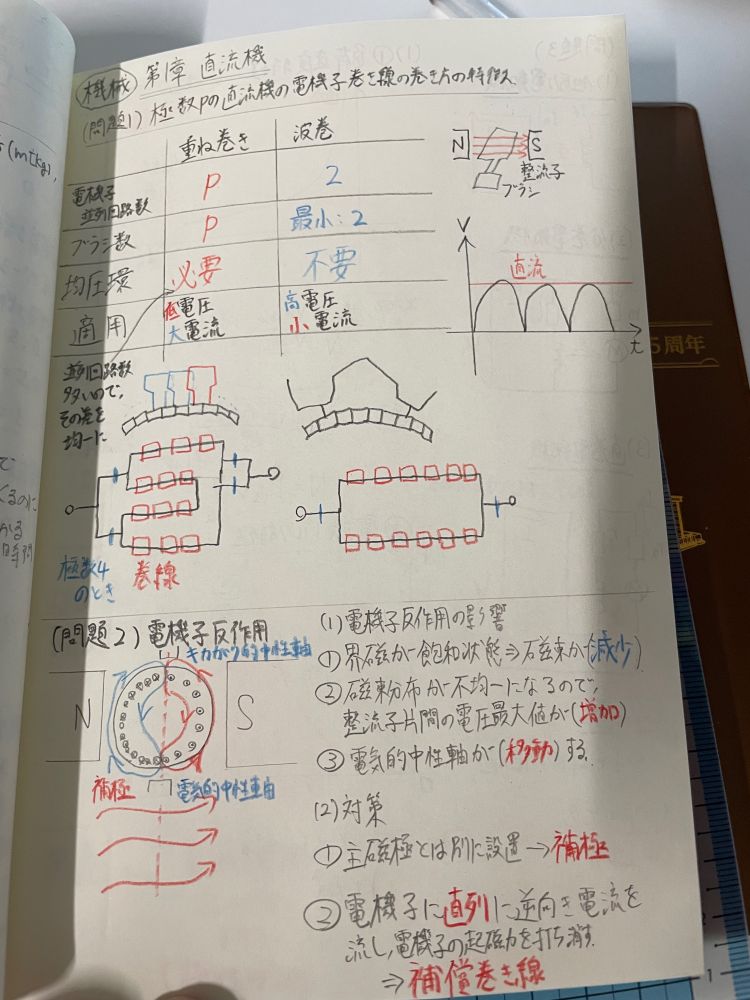 機械 第1章 直流機
(問題1) 極数Pの直流機の電機子巻き線の巻き方の特徴
重ね巻き 波巻
電機子並列回路数 P 2
ブラシ数 P 最小:2
均圧環 必要 不要
適用 低電圧 大電流 高電圧 小電流
N S
整流子
ブラシ
V
直流
t
並列回路数
多いので、
その差を
均一に
極数4
のとき
巻線
(問題2) 電機子反作用
キカガク的中性軸
N S
補極 電気的中性軸
(1) 電機子反作用の影響
① 界磁が飽和状態⇒磁束が(減少)
② 磁束分布が不均一になるので、
整流子片間の電圧最大値が(増加)
③ 電気的中性軸が(移動)する。
(2) 対策
① 主磁極とは別に設置→補極
② 電機子に直列に逆向き電流を
流し、電機子の起磁力を打ち消す。
⇒補償巻き線
(mtkg),
5周年